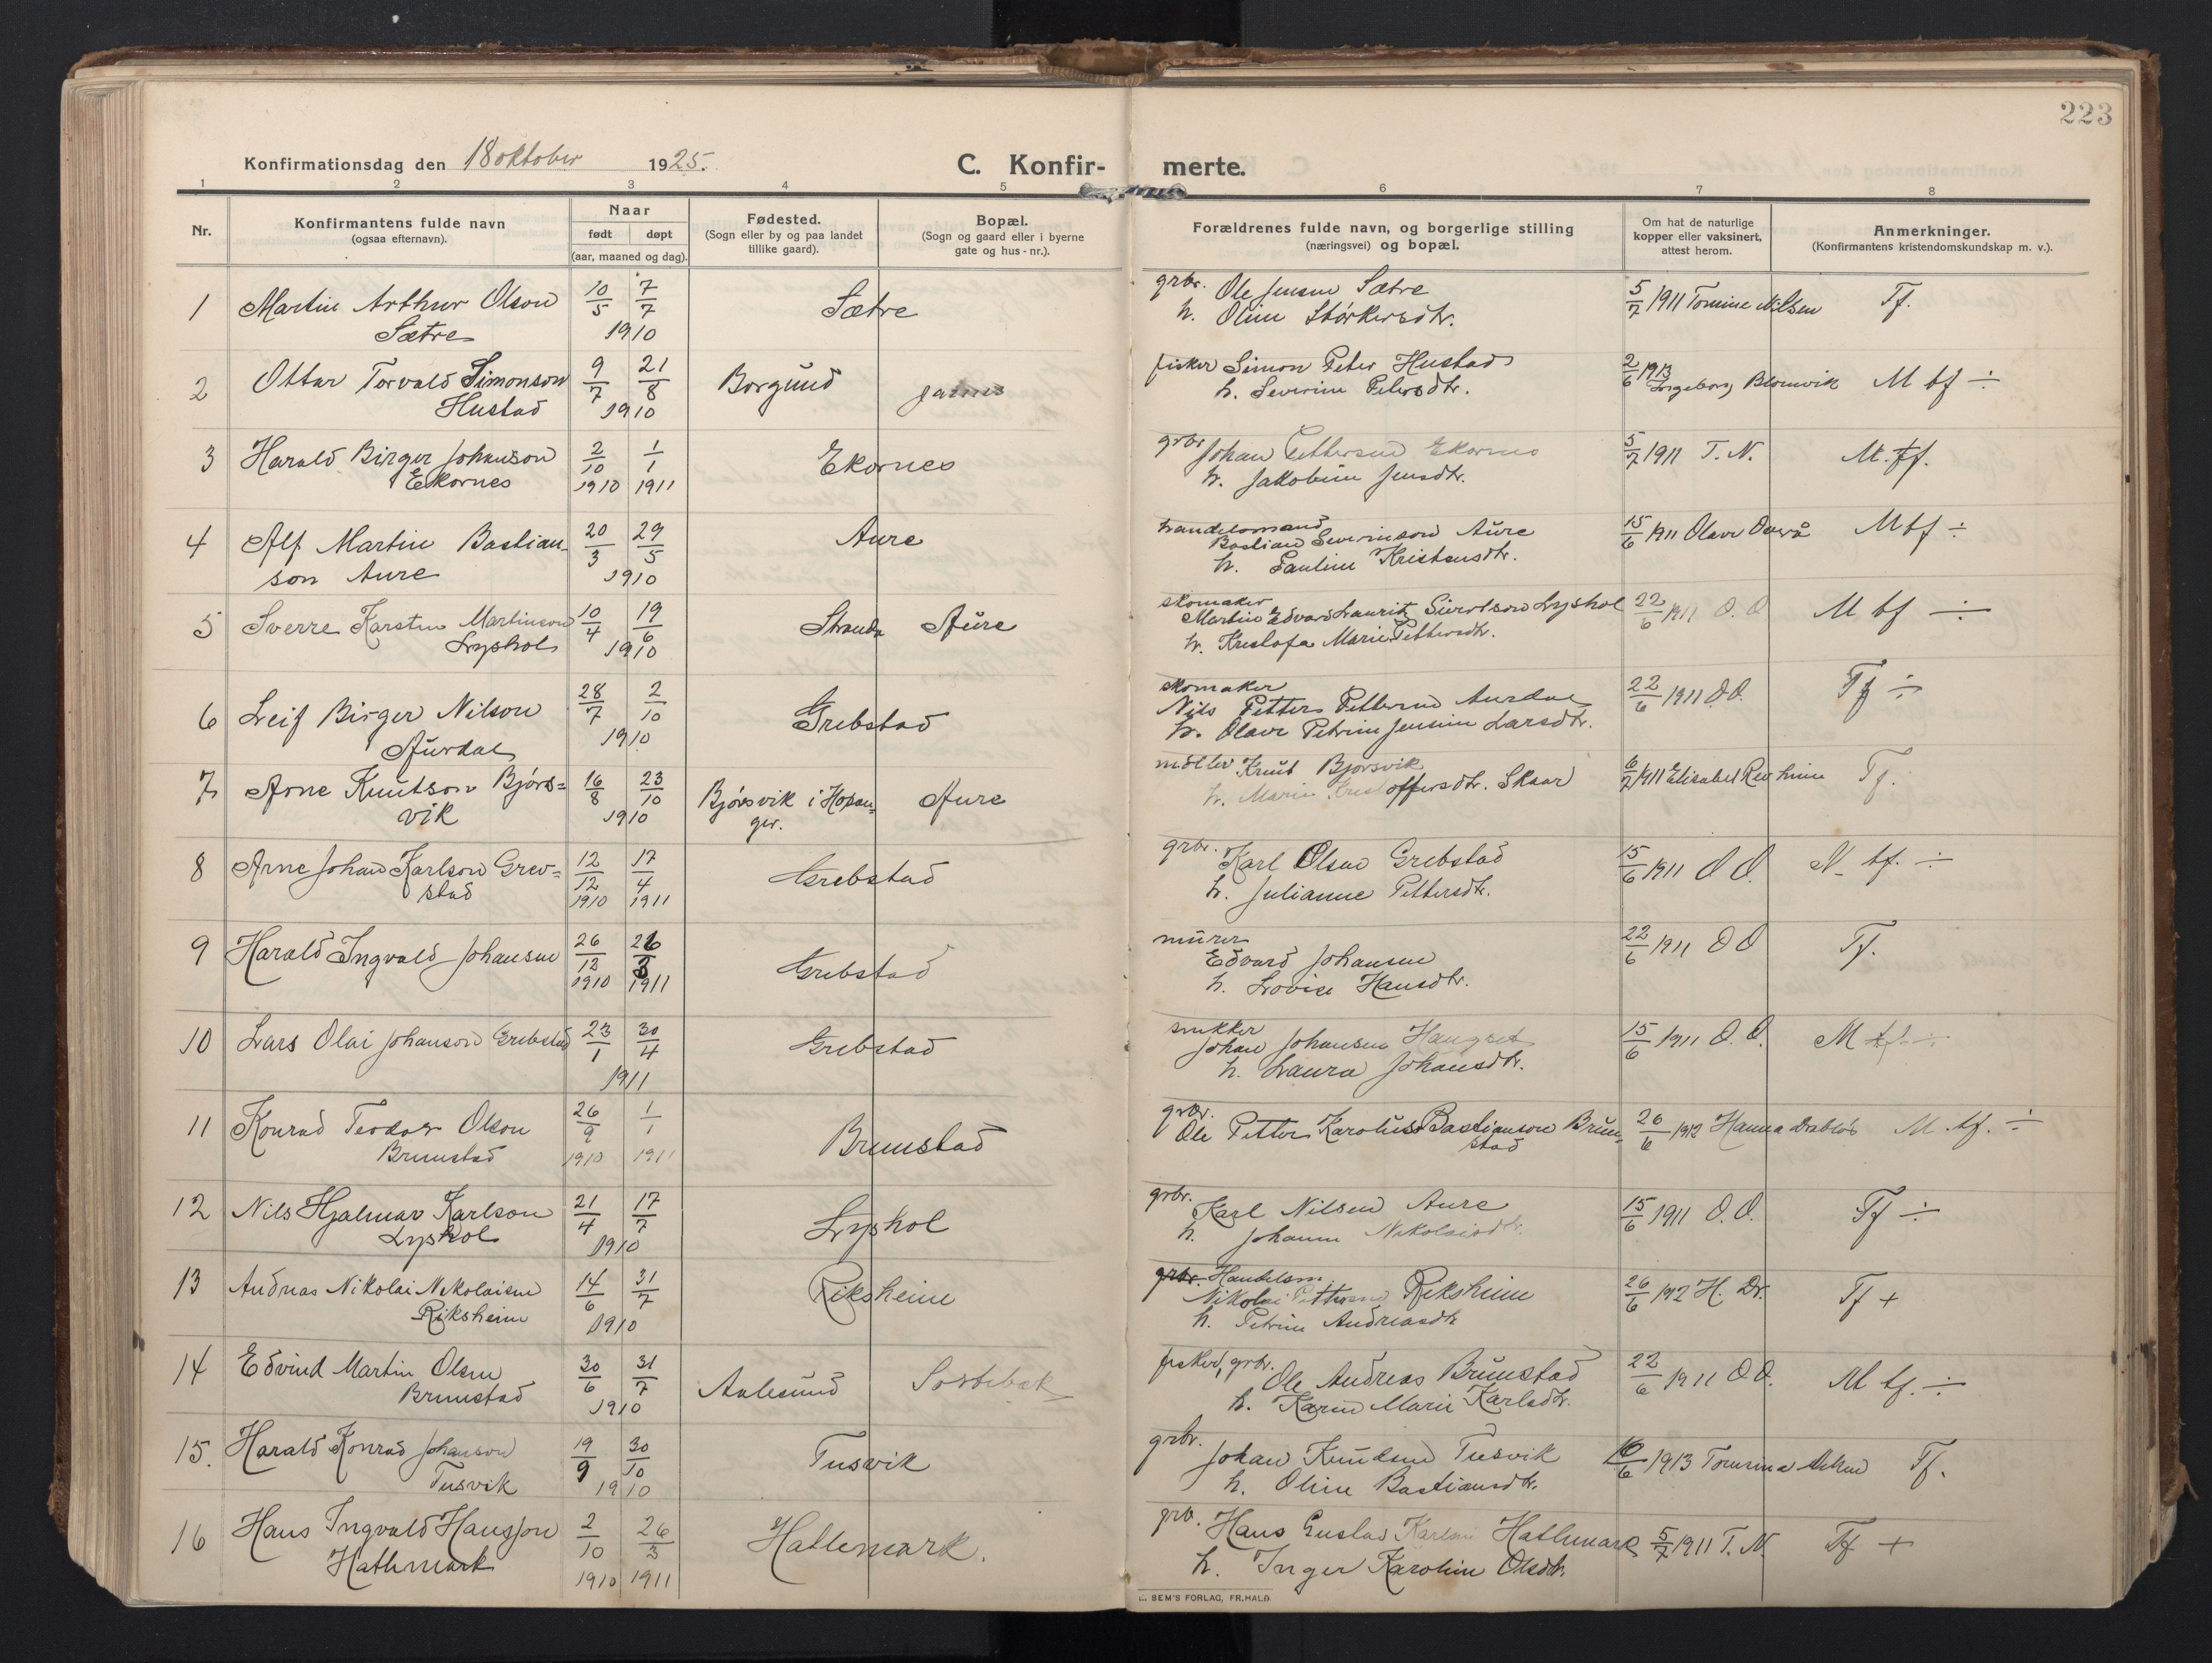 223
Konfirmationsdag den 18 oktober 1925.
C. Konfir- merte.
1 2 3 4 5 6 7 8
Nr.
Konfirmantens fulde navn
(ogsaa efternavn).
Naar
født døpt
(aar, maaned og dag).
Fødested.
(Sogn eller by og paa landet
tillike gaard).
Bopæl.
(Sogn og gaard eller i byerne
gate og hus-nr.).
Forældrenes fulde navn, og borgerlige stilling
(næringsvei) og bopæl.
Om hat de naturlige
kopper eller vaksinert,
attest herom.
Anmerkninger.
(Konfirmantens kristendomskundskap m. v.).
1 Martin Arthur Olson 10/5 7/7 Sætre grbr. Ole Jensen Sætre 5/7 1911 Tomine Nilsen Tf.
Sætre 1910 h. Oline Størkersdtr.
2 Ottar Torvald Simonson 9/7 21/8 Borgund fisker Simon Peter Hustad 2/6 1913 Ingeborg Blomvik M tf ÷
Hustad 1910 h. Severine Petersdtr.
3 Harald Birger Johanson 2/10 1/1 Ekornes grbr Johan Pettersen Ekornes 5/7 1911 T. N. M. tf.
Ekornes 1910 1911 h. Jakobine Jensdtr.
4 Alf Martin Bastian- 20/3 29/5 Aure handelsmand Bastian Severinson Aure 15/6 1911 Olave M tf ÷
son Aure 1910 h. Pauline Kristensdtr.
5 Sverre Karsten Martinson 10/4 19/6 Stranda Aure skomaker Martin Edvard Laurits Lyshol 22/6 1911 O. O M tf ÷
Lyshol 1910 h. Kristofa Marie Pettersdtr.
6 Leif Birger Nilson 28/7 2/10 Grebstad skomaker Nils Petter Pettersen Aurdal 22/6 1911 O.O. Tf ÷
Aurdal 1910 h. Olave Petrine Jensine Larsdtr.
7 Arne Knutson Bjørs= 16/8 23/10 Bjørsvik i Hosan= Aure møller Knut Bjørsvik 6/7 1911 Elisabet Tf.
vik 1910 ger. h. Marie Kristoffersdtr. Skaar
8 Arne Johan Karlson Grev= 12/12 17/4 Grebstad grbr. Karl Olsen Grebstad 15/6 1911 O O. M tf. ÷
stad 1910 1911 h. Julianne Pettersdtr.
9 Harald Ingvald Johansen 26/12 26/3 Grebstad murer Edvard Johansen 22/6 1911 O O Tf.
1910 1911 h. Lovise Hansdtr.
10 Lars Olai Johanson Grebstad 23/1 30/4 Grebstad snekker Johan Johansen 15/6 1911 O. O. M tf. ÷
1911 h. Laura Johansdtr.
11 Konrad Teodor Olson 26/9 1/1 Brunstad grbr. Ole Petter Karolius Bastianson Brun- 26/6 1912 Hanna Drabløs M. tf. ÷
Brunstad 1910 1911 stad
12 Nils Hjalmar Karlson 21/4 17/7 Lyshol grbr. Karl Nilsen Aure 15/6 1911 O. O. Tf ÷
Lyshol 1910 h. Johanne Nikolaisdtr.
13 Andreas Nikolai Nikolaisen 14/6 31/7 Riksheim grbr. Handelsm. Nikolai Pettersen Riksheim 26/6 1912 H. Dr. Tf +
Riksheim 1910 h. Petrine Andreasdtr
14 Edvind Martin Olsen 30/6 31/7 Aalesund Sortebek fisker, grbr. Ole Andreas Brunstad 22/6 1911 O O. M tf. ÷
Brunstad 1910 h. Karen Marie Karlsdtr.
15. Harald Konrad Johanson 19/9 30/10 Tusvik grbr. Johan Knudsen Tusvik 10/6 1913 Tomina Nilsen Tf.
Tusvik 1910 h. Oline Bastiansdtr.
16 Hans Ingvald Hansson 2/10 26/3 Hatlemark. grbr. Hans Gustav Karlsen Hatlemark 5/7 1911 T. N. Tf +
Hatlemark 1910 1911 h. Inger Karoline Olsdtr.
SEM'S FORLAG, FR.HALD